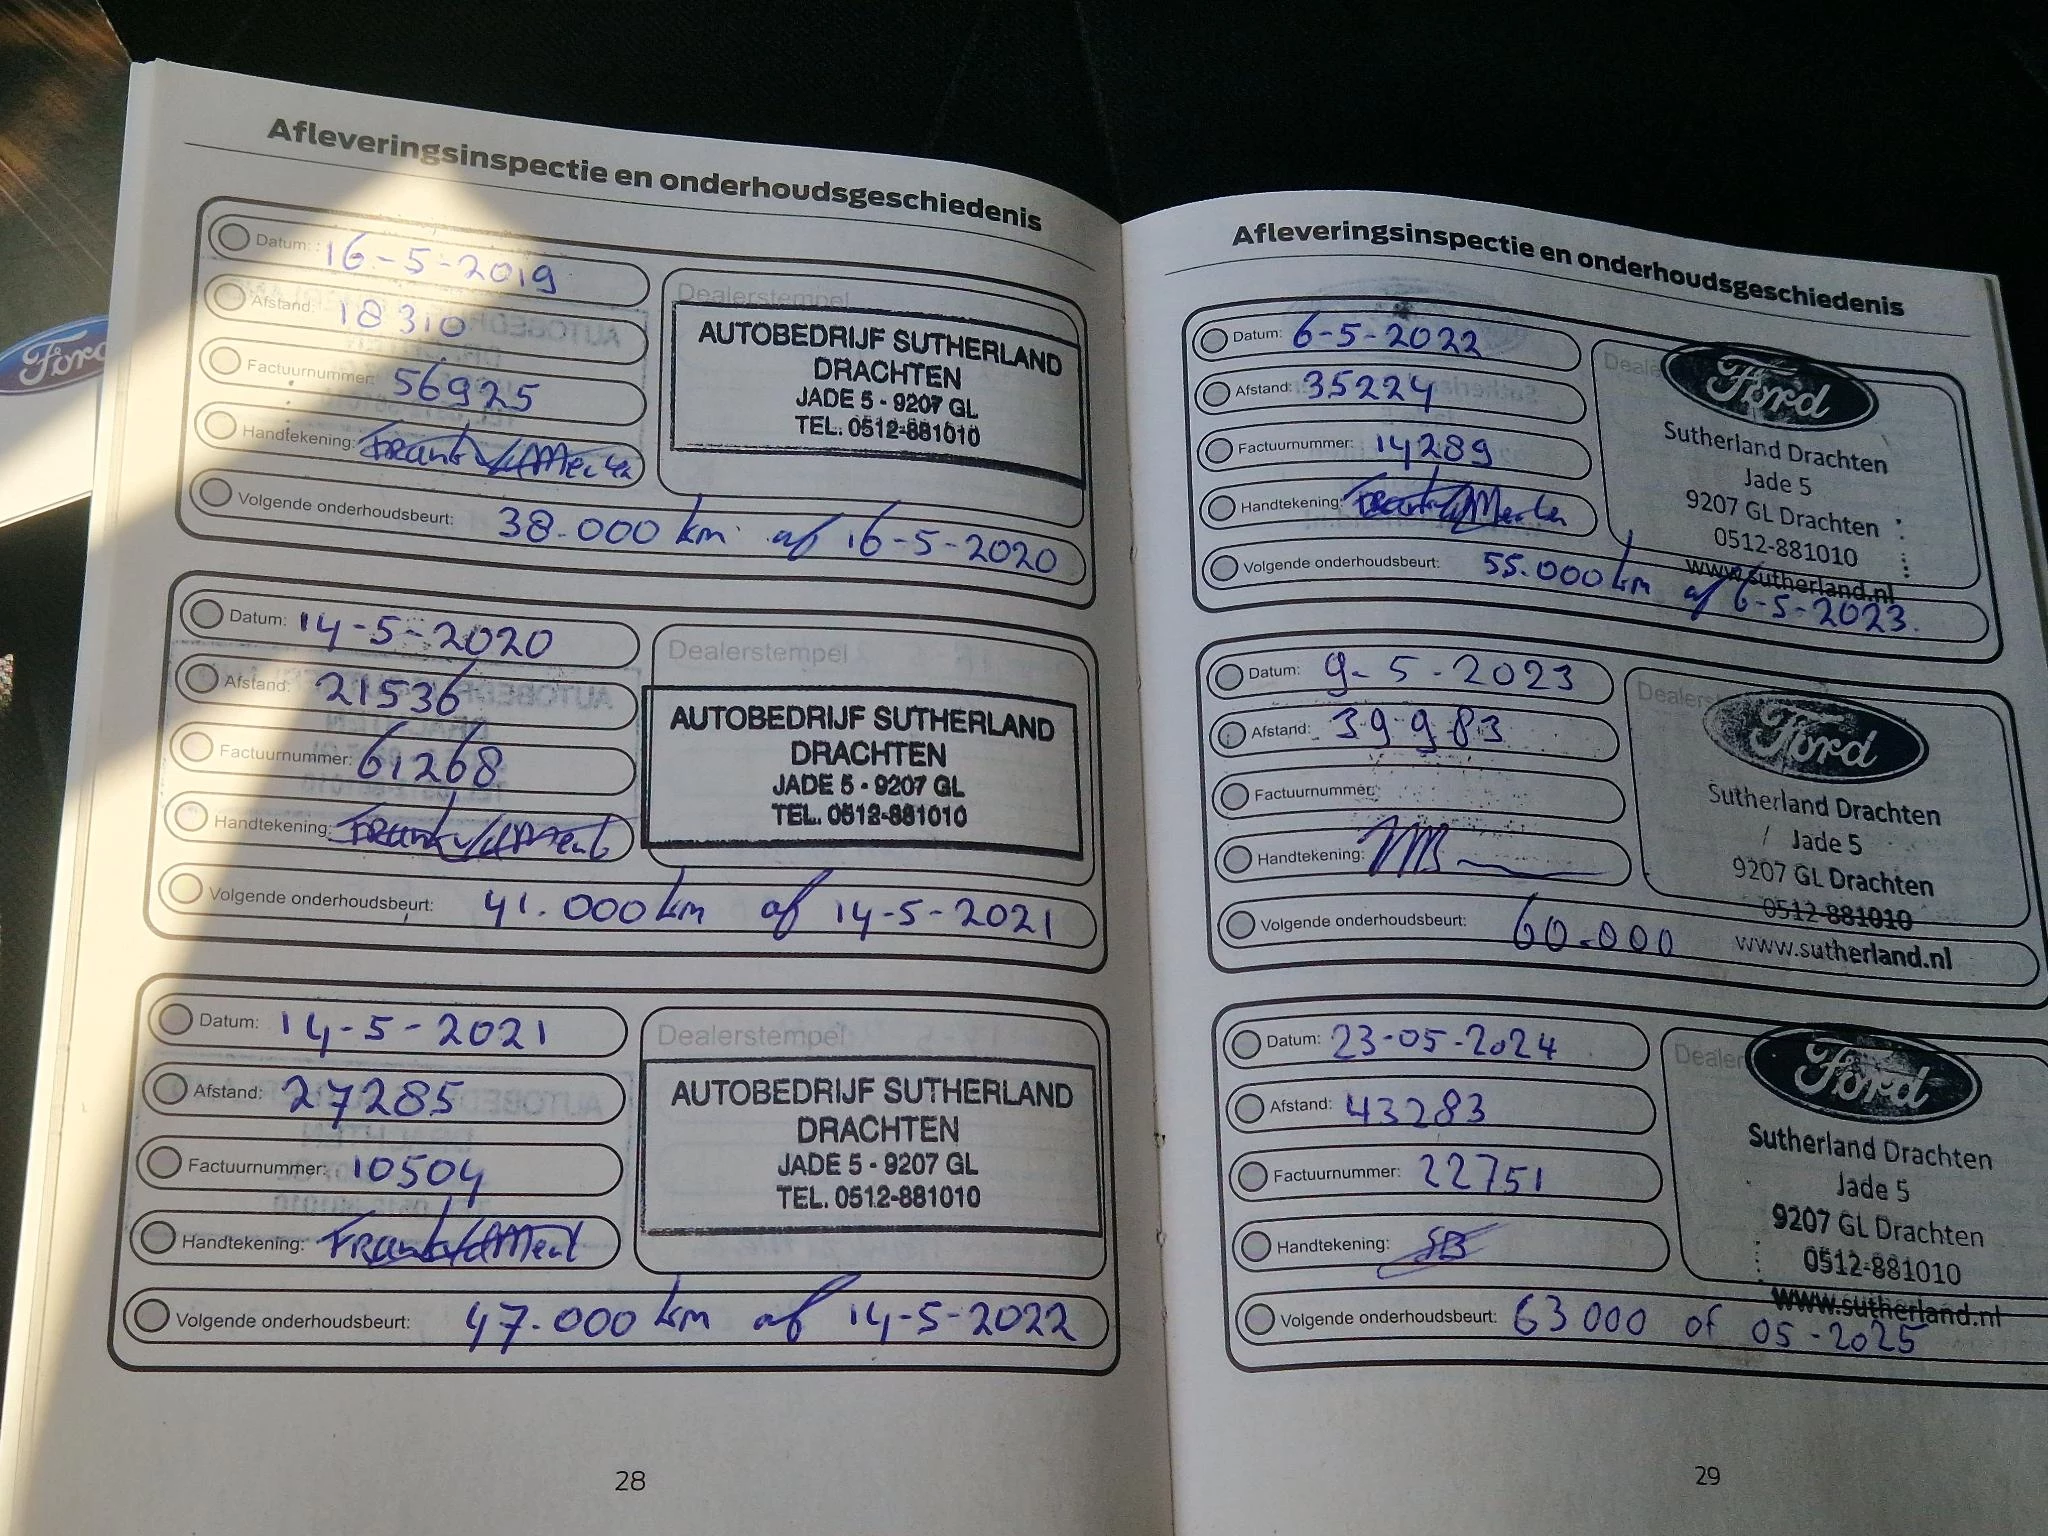 Ford
Afleveringsinspectie en onderhoudsgeschiedenis
Datum: 16-5-2019
Afstand: 18310
Factuurnummer: 56925
Handtekening: Frank
Volgende onderhoudsbeurt: 38.000 km of 16-5-2020
Dealerstempel
AUTOBEDRIJF SUTHERLAND
DRACHTEN
JADE 5 - 9207 GL
TEL. 0512-881010
Datum: 14-5-2020
Afstand: 21536
Factuurnummer: 61268
Handtekening: Frank
Volgende onderhoudsbeurt: 41.000 km of 14-5-2021
Dealerstempel
AUTOBEDRIJF SUTHERLAND
DRACHTEN
JADE 5 - 9207 GL
TEL. 0512-881010
Datum: 14-5-2021
Afstand: 27285
Factuurnummer: 10504
Handtekening: Frank
Volgende onderhoudsbeurt: 47.000 km of 14-5-2022
Dealerstempel
AUTOBEDRIJF SUTHERLAND
DRACHTEN
JADE 5 - 9207 GL
TEL. 0512-881010
28
Afleveringsinspectie en onderhoudsgeschiedenis
Datum: 6-5-2022
Afstand: 35224
Factuurnummer: 14289
Handtekening: Frank
Volgende onderhoudsbeurt: 55.000 km of 6-5-2023.
Ford
Sutherland Drachten
Jade 5
9207 GL Drachten
0512-881010
www.sutherland.nl
Datum: 9-5-2023
Afstand: 39983
Factuurnummer:
Handtekening:
Volgende onderhoudsbeurt: 60.000
Ford
Sutherland Drachten
Jade 5
9207 GL Drachten
0512-881010
www.sutherland.nl
Datum: 23-05-2024
Afstand: 43283
Factuurnummer: 22751
Handtekening: SB
Volgende onderhoudsbeurt: 63000 of 05-2025
Ford
Sutherland Drachten
Jade 5
9207 GL Drachten
0512-881010
www.sutherland.nl
29